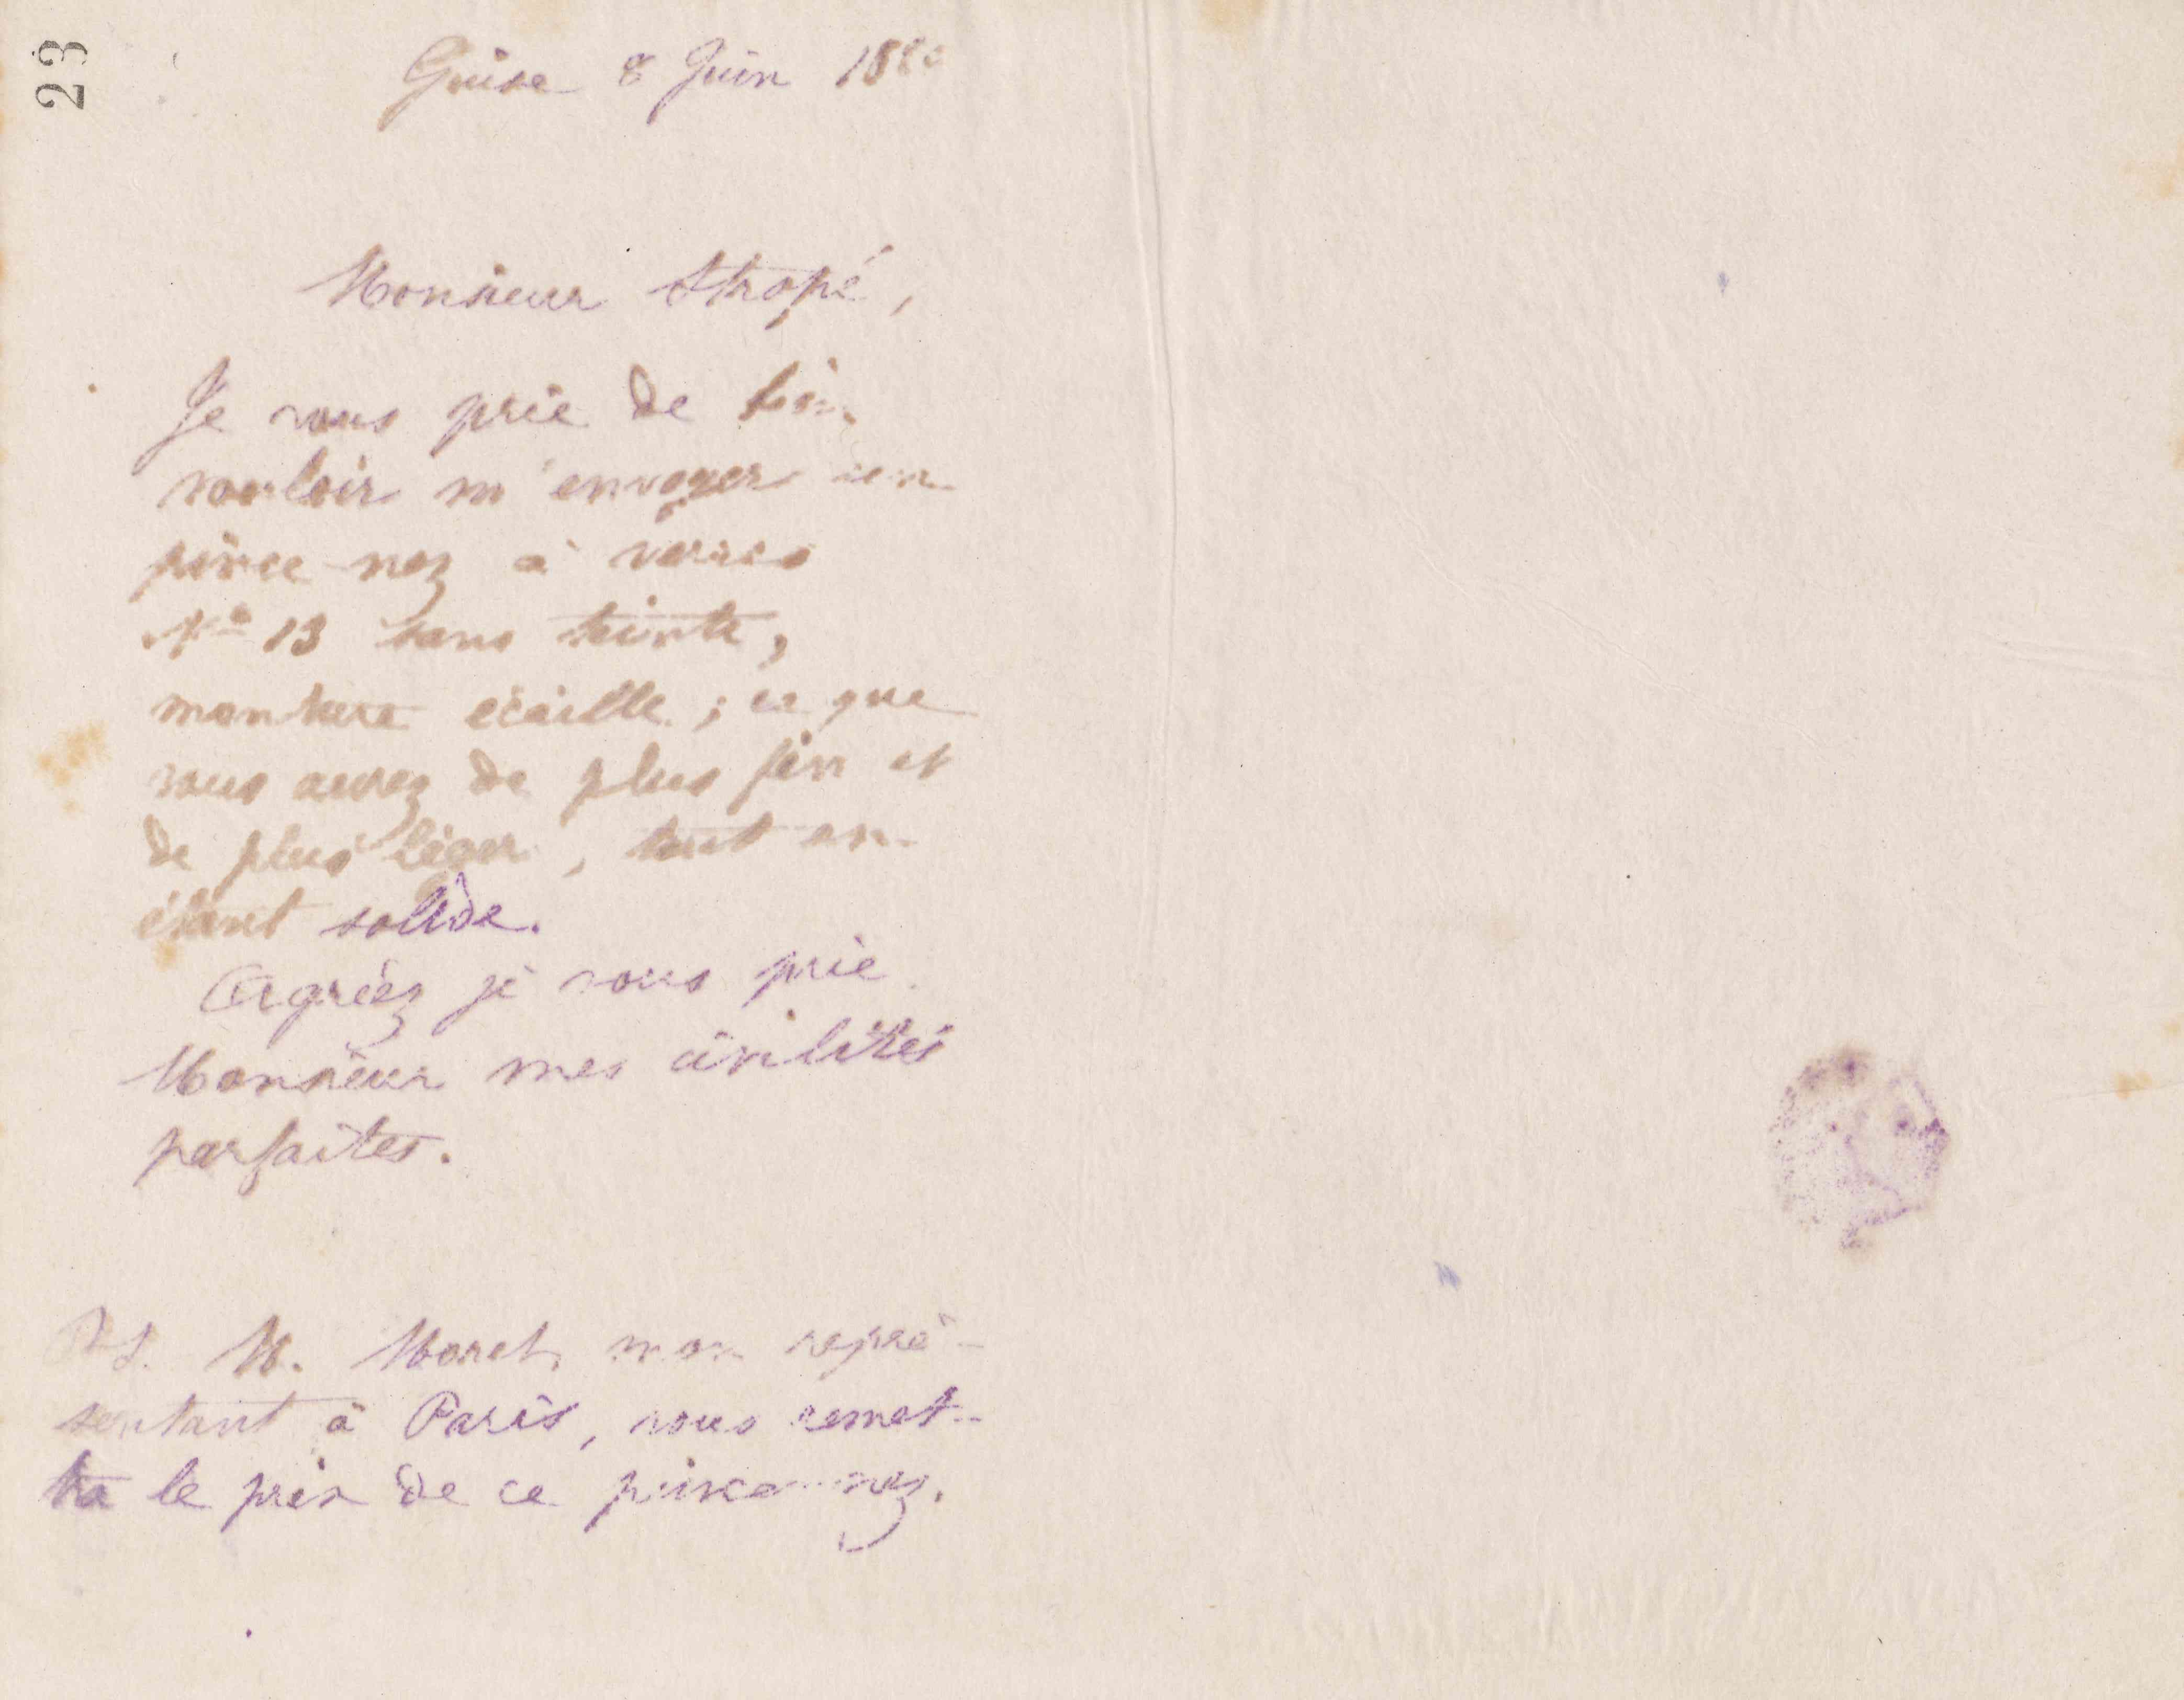 23
Guise 8 Juin 1880
Monsieur Stropé,
Je vous prie de bien
vouloir m'envoyer un
pince-nez à verres
N° 13 sans teinte,
monture écaille ; ce que
vous aurez de plus fin et
de plus léger, tout en
étant solide.
Agréez je vous prie
Monsieur mes civilités
parfaites.
P.S. M. Moret, mon repré-
sentant à Paris, vous remet-
tra le prix de ce pince-nez.